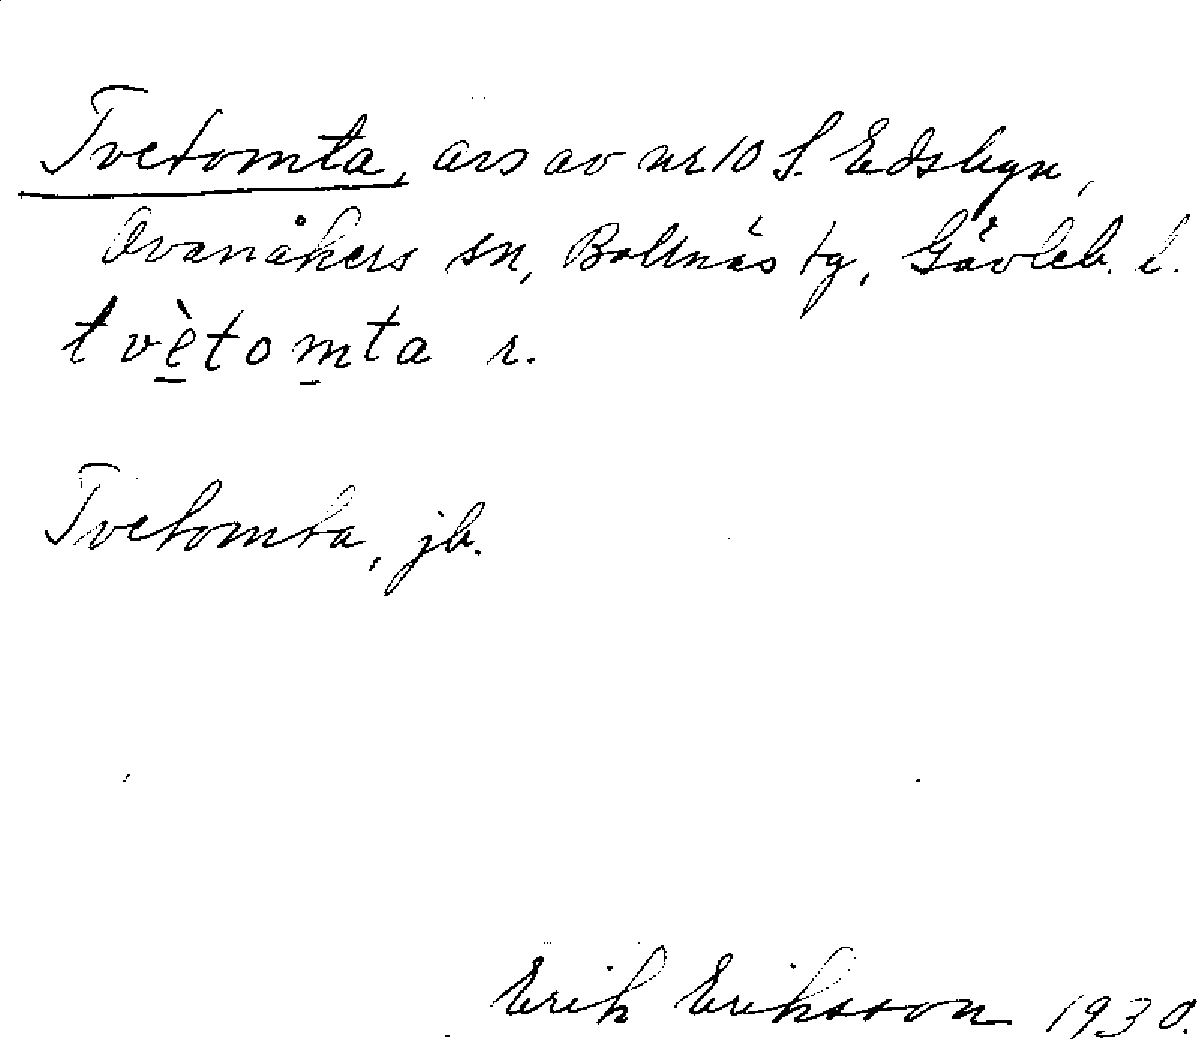 Tvetomta, avs av nr 10 S. Edsbyn,
Ovanåkers sn, Bollnäs tg, Gävleb. l.
tvètomta r.
Tvetomta, jb.
Erik Eriksson 1930.